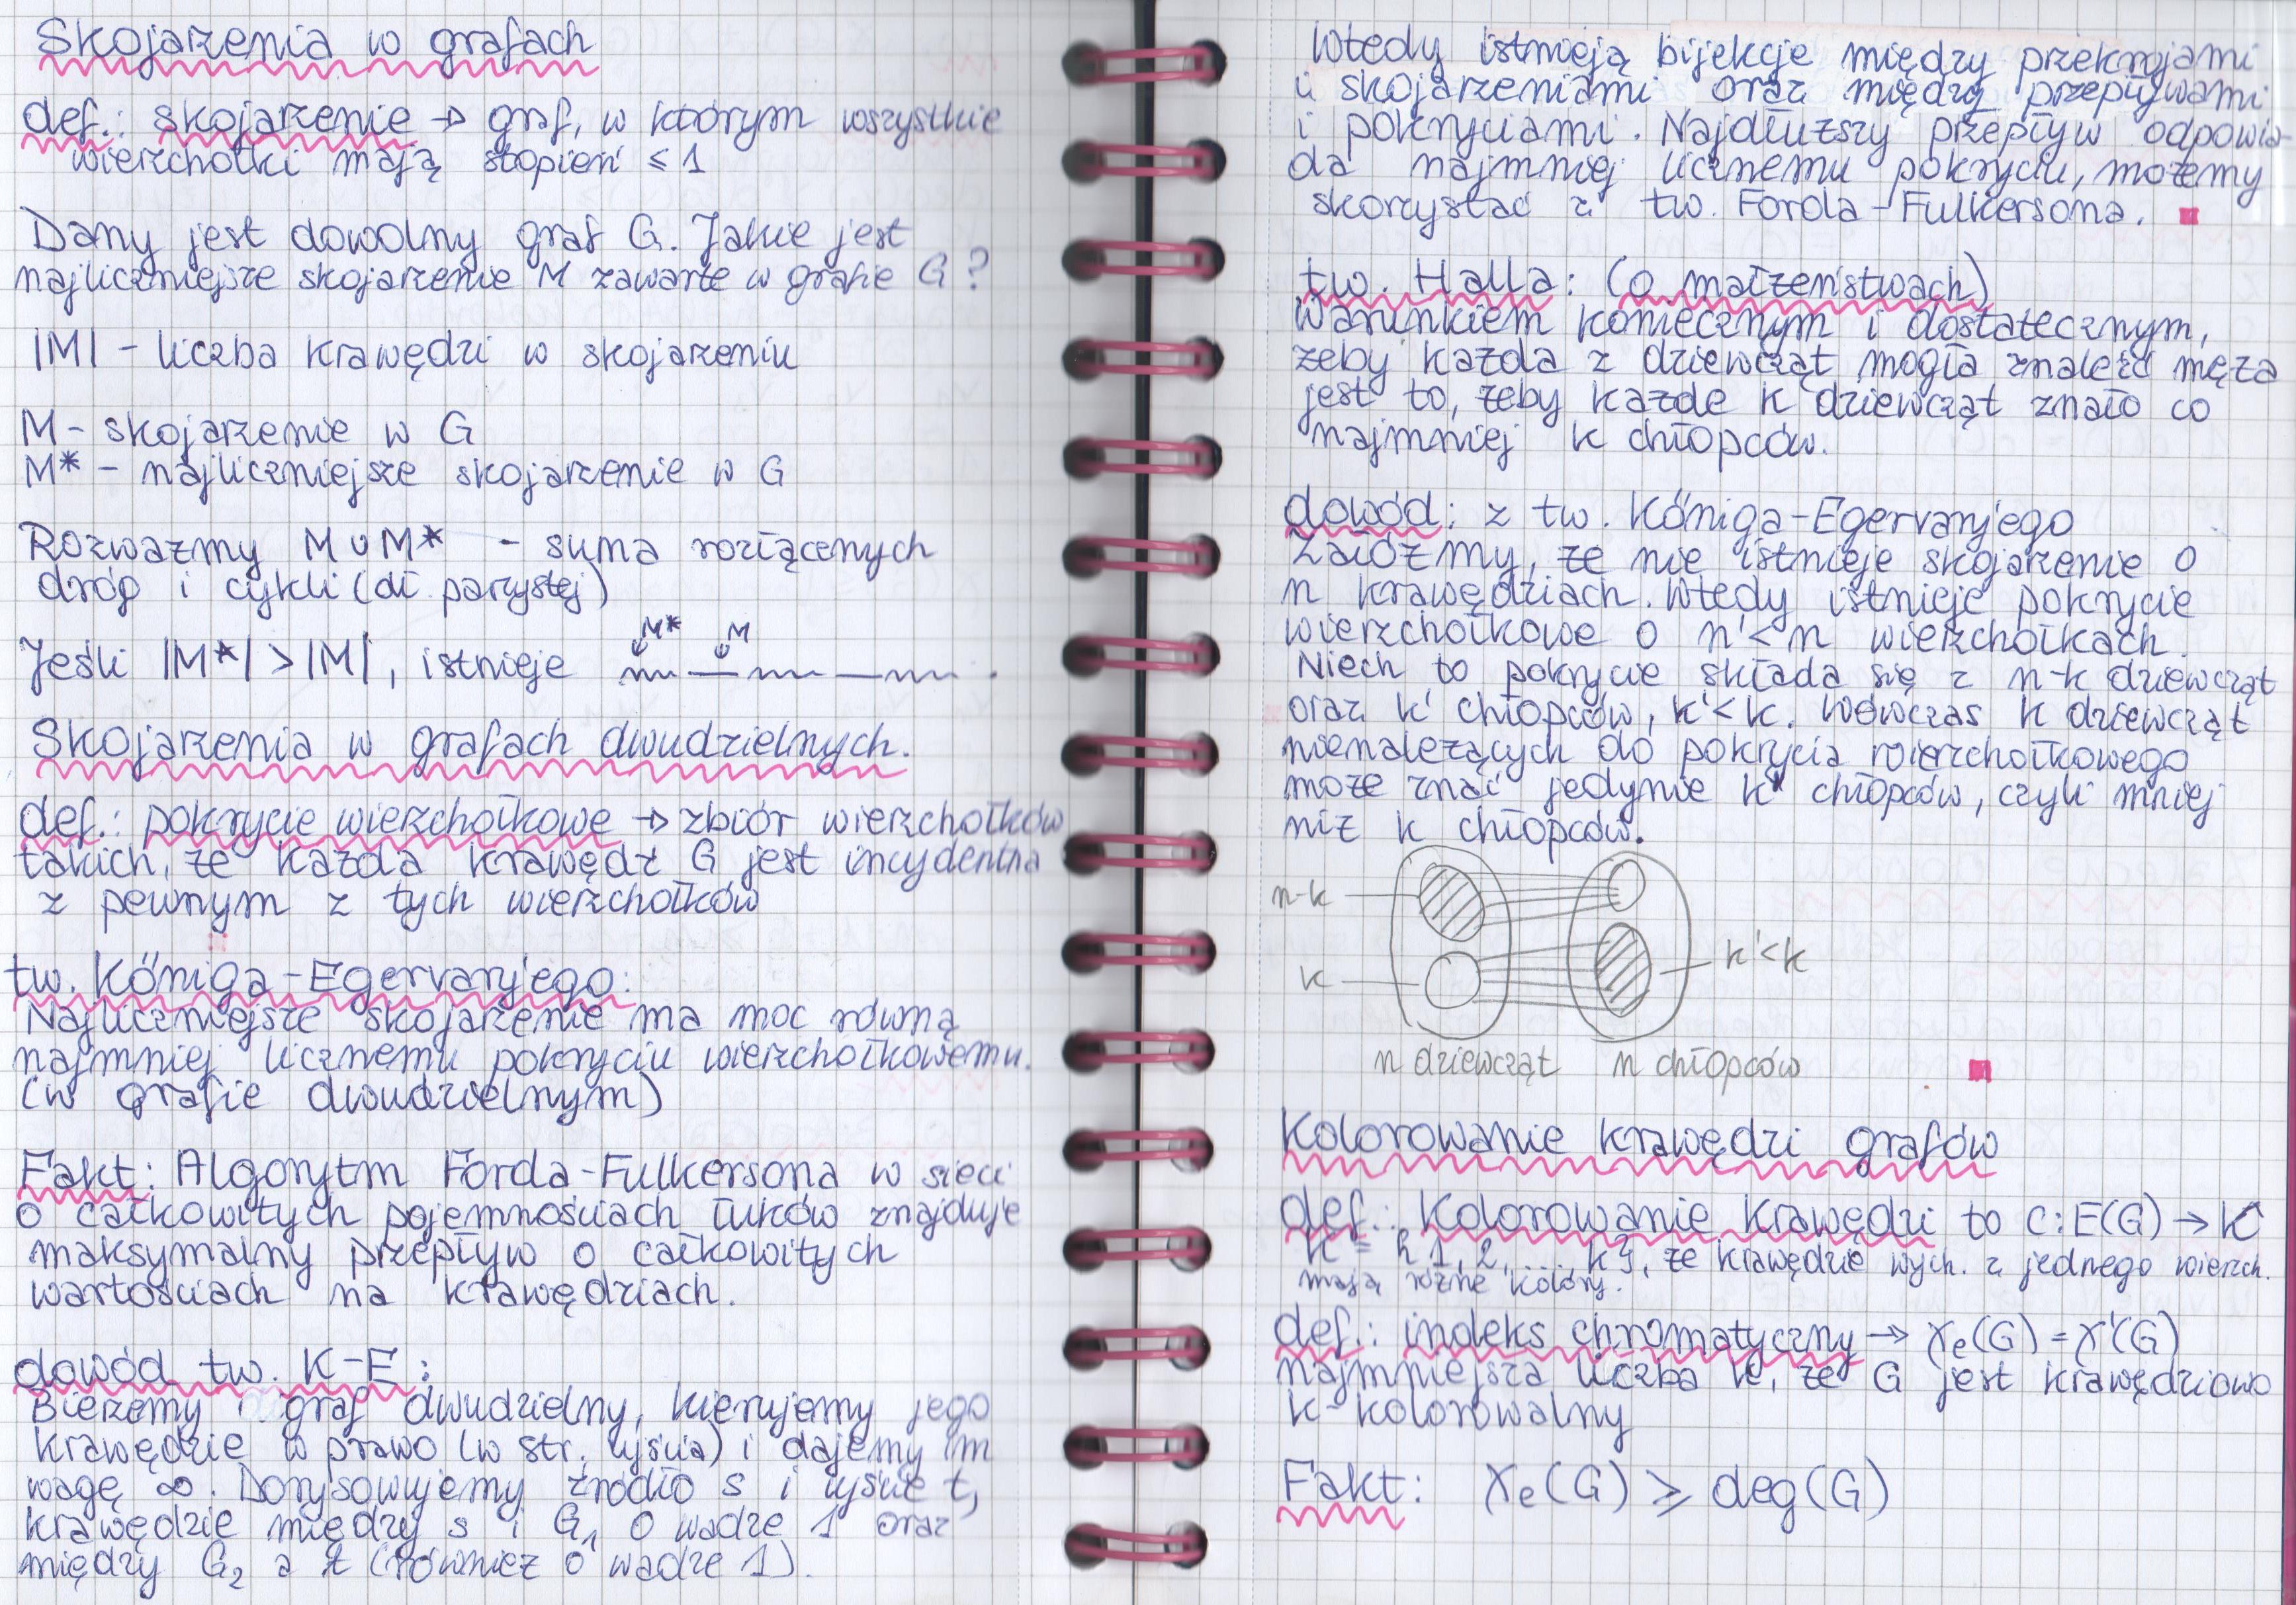 Skojarzenia w grafach
def.: skojarzenie → graf, w którym wszystkie
wierzchołki mają stopień ≤ 1
Dany jest dowolny graf G. Jakie jest
najliczniejsze skojarzenie M zawarte w grafie G?
|M| - liczba krawędzi w skojarzeniu
M - skojarzenie w G
M* - najliczniejsze skojarzenie w G
Rozważmy M∪M* - suma rozłącznych
dróg i cykli (dł. parzystej)
M* M
Jeśli |M*| > |M|, istnieje
Skojarzenia w grafach dwudzielnych.
def.: pokrycie wierzchołkowe → zbiór wierzchołków
takich, że każda krawędź G jest incydentna
z pewnym z tych wierzchołków
tw. Kőniga-Egervary'ego:
Najliczniejsze skojarzenie ma moc równą
najmniej licznemu pokryciu wierzchołkowemu.
(w grafie dwudzielnym)
Fakt: Algorytm Forda-Fulkersona w sieci
o całkowitych pojemnościach łuków znajduje
maksymalny przepływ o całkowitych
wartościach na krawędziach.
dowód tw. K-E:
Bierzemy graf dwudzielny, kierujemy jego
krawędzie w prawo (w str. ujścia) i dajemy im
wagę ∞. Dorysowujemy źródło s i ujście t,
krawędzie między s i G₁ o wadze 1 oraz
między G₂ a t (również o wadze 1).
Wtedy istnieją bijekcje między przekrojami
i skojarzeniami oraz między przepływami
i pokryciami. Najdłuższy przepływ odpowia-
da najmniej licznemu pokryciu, możemy
skorzystać z tw. Forda-Fulkersona.
tw. Halla: (o małżeństwach)
Warunkiem koniecznym i dostatecznym,
żeby każda z dziewcząt mogła znaleźć męża
jest to, żeby każde k dziewcząt znało co
najmniej k chłopców.
dowód: z tw. Kőniga-Egervary'ego
Załóżmy, że nie istnieje skojarzenie o
n krawędziach. Wtedy istnieje pokrycie
wierzchołkowe o n' < n wierzchołkach.
Niech to pokrycie składa się z n-k dziewcząt
oraz k' chłopców, k' < k. Wówczas k dziewcząt
nienależących do pokrycia wierzchołkowego
może znać jedynie k' chłopców, czyli mniej
niż k chłopców.
n-k
k
k' < k
n dziewcząt n chłopców
Kolorowanie krawędzi grafów
def.: Kolorowanie krawędzi to c: E(G) → K
K = {1, 2, ..., k}, że krawędzie wych. z jednego wierzch.
mają różne kolory.
def.: indeks chromatyczny → χₑ(G) = χ'(G)
najmniejsza liczba k, że G jest krawędziowo
k-kolorowalny
Fakt: χₑ(G) ≥ deg(G)